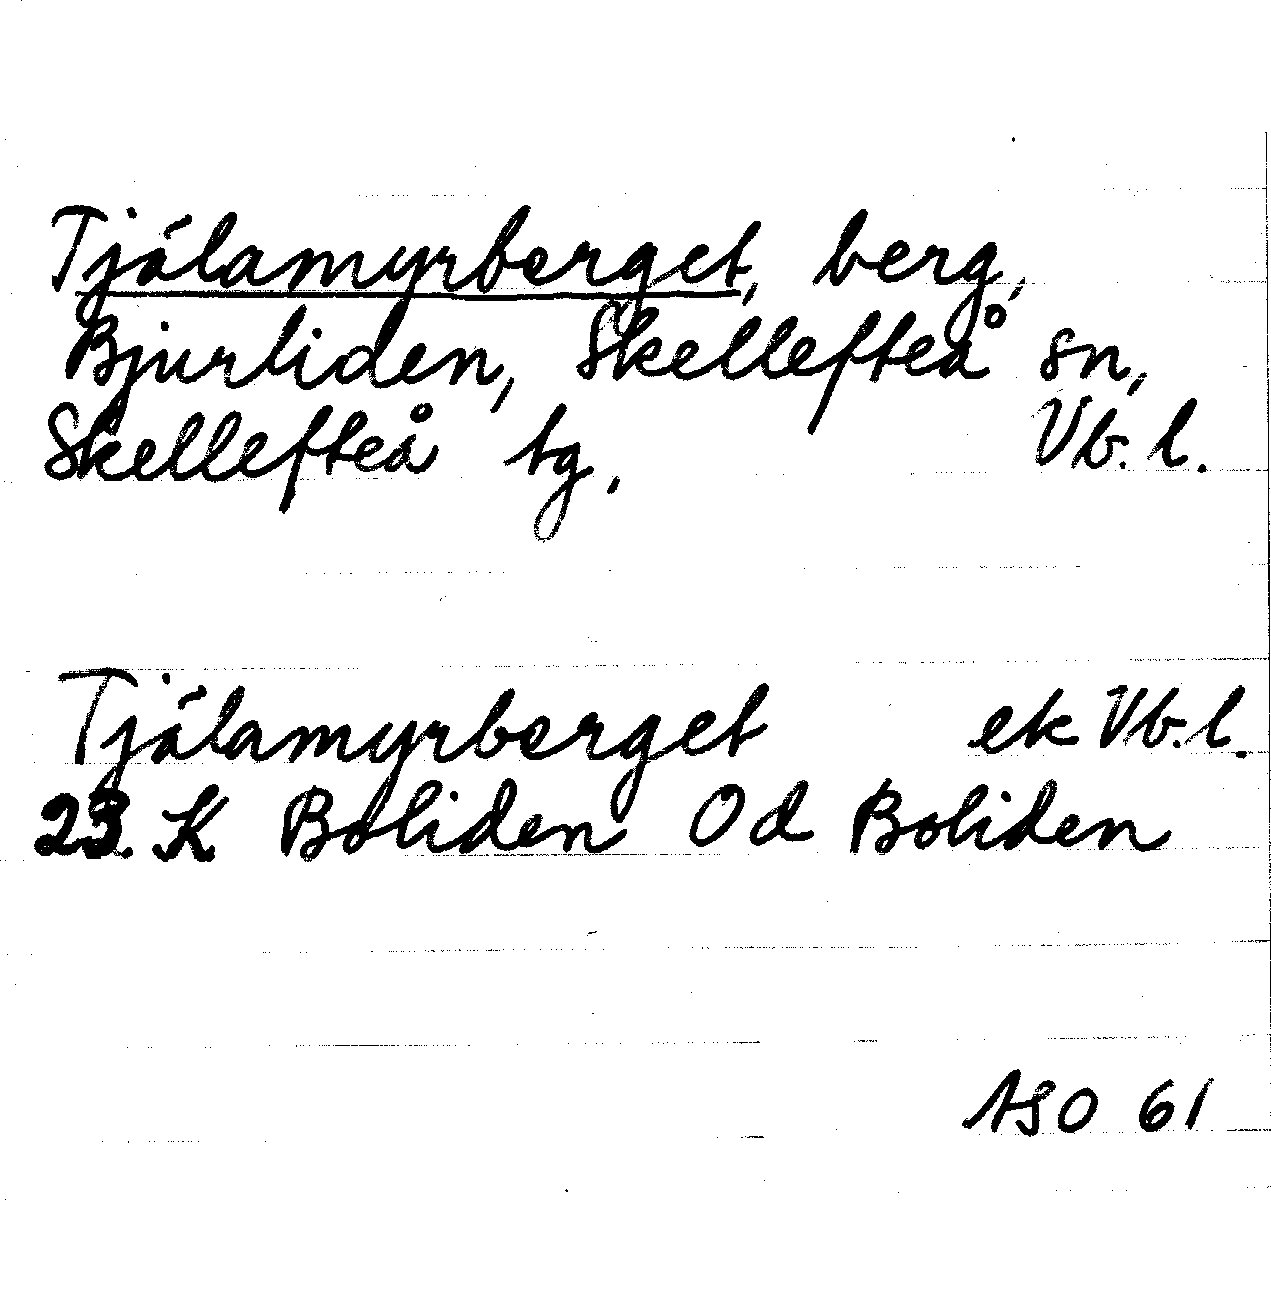 Tjålamyrberget, berg,
Bjurliden, Skellefteå sn,
Skellefteå tg, Vb. l.
Tjålamyrberget ek Vb. l.
23. K Boliden Od Boliden
ASO 61